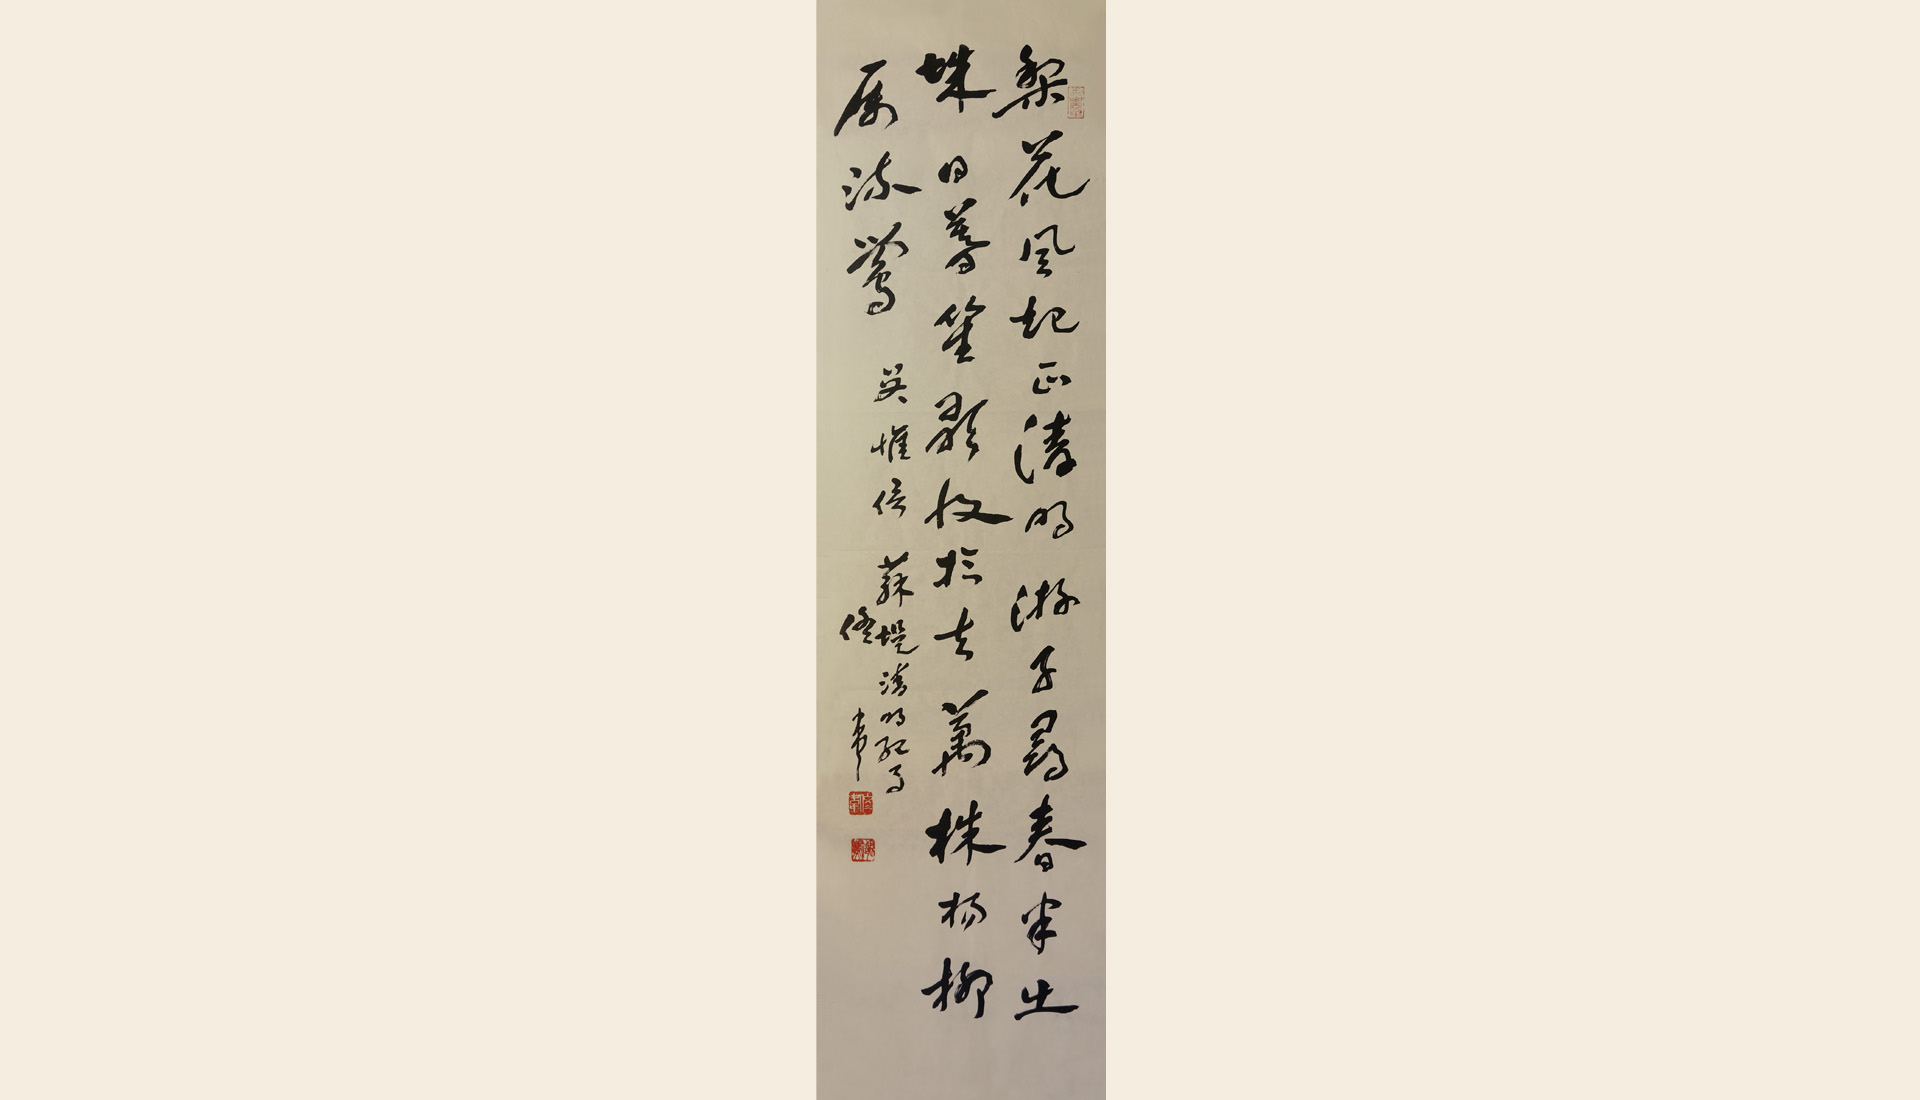 梨花風起正清明游子尋春半出
城日暮笙歌收拾去萬株杨柳
属流鶯
吴惟信 蘇堤清明紀事